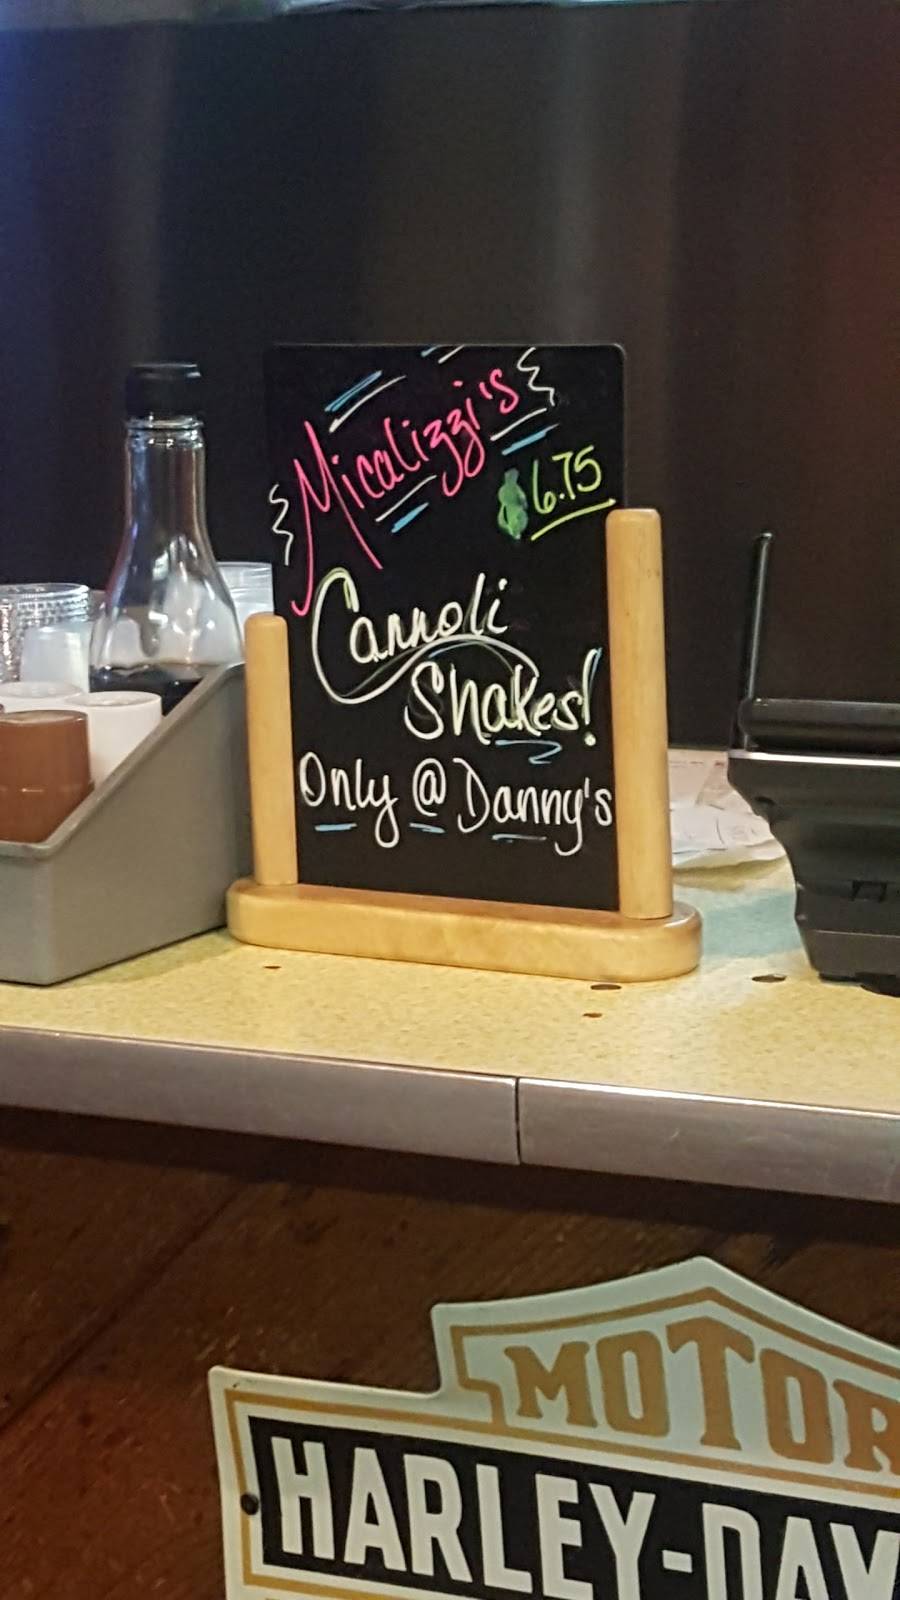 Micalizzi's
$6.75
Cannoli
Shakes!
Only @ Danny's
MOTOR
HARLEY-DAV